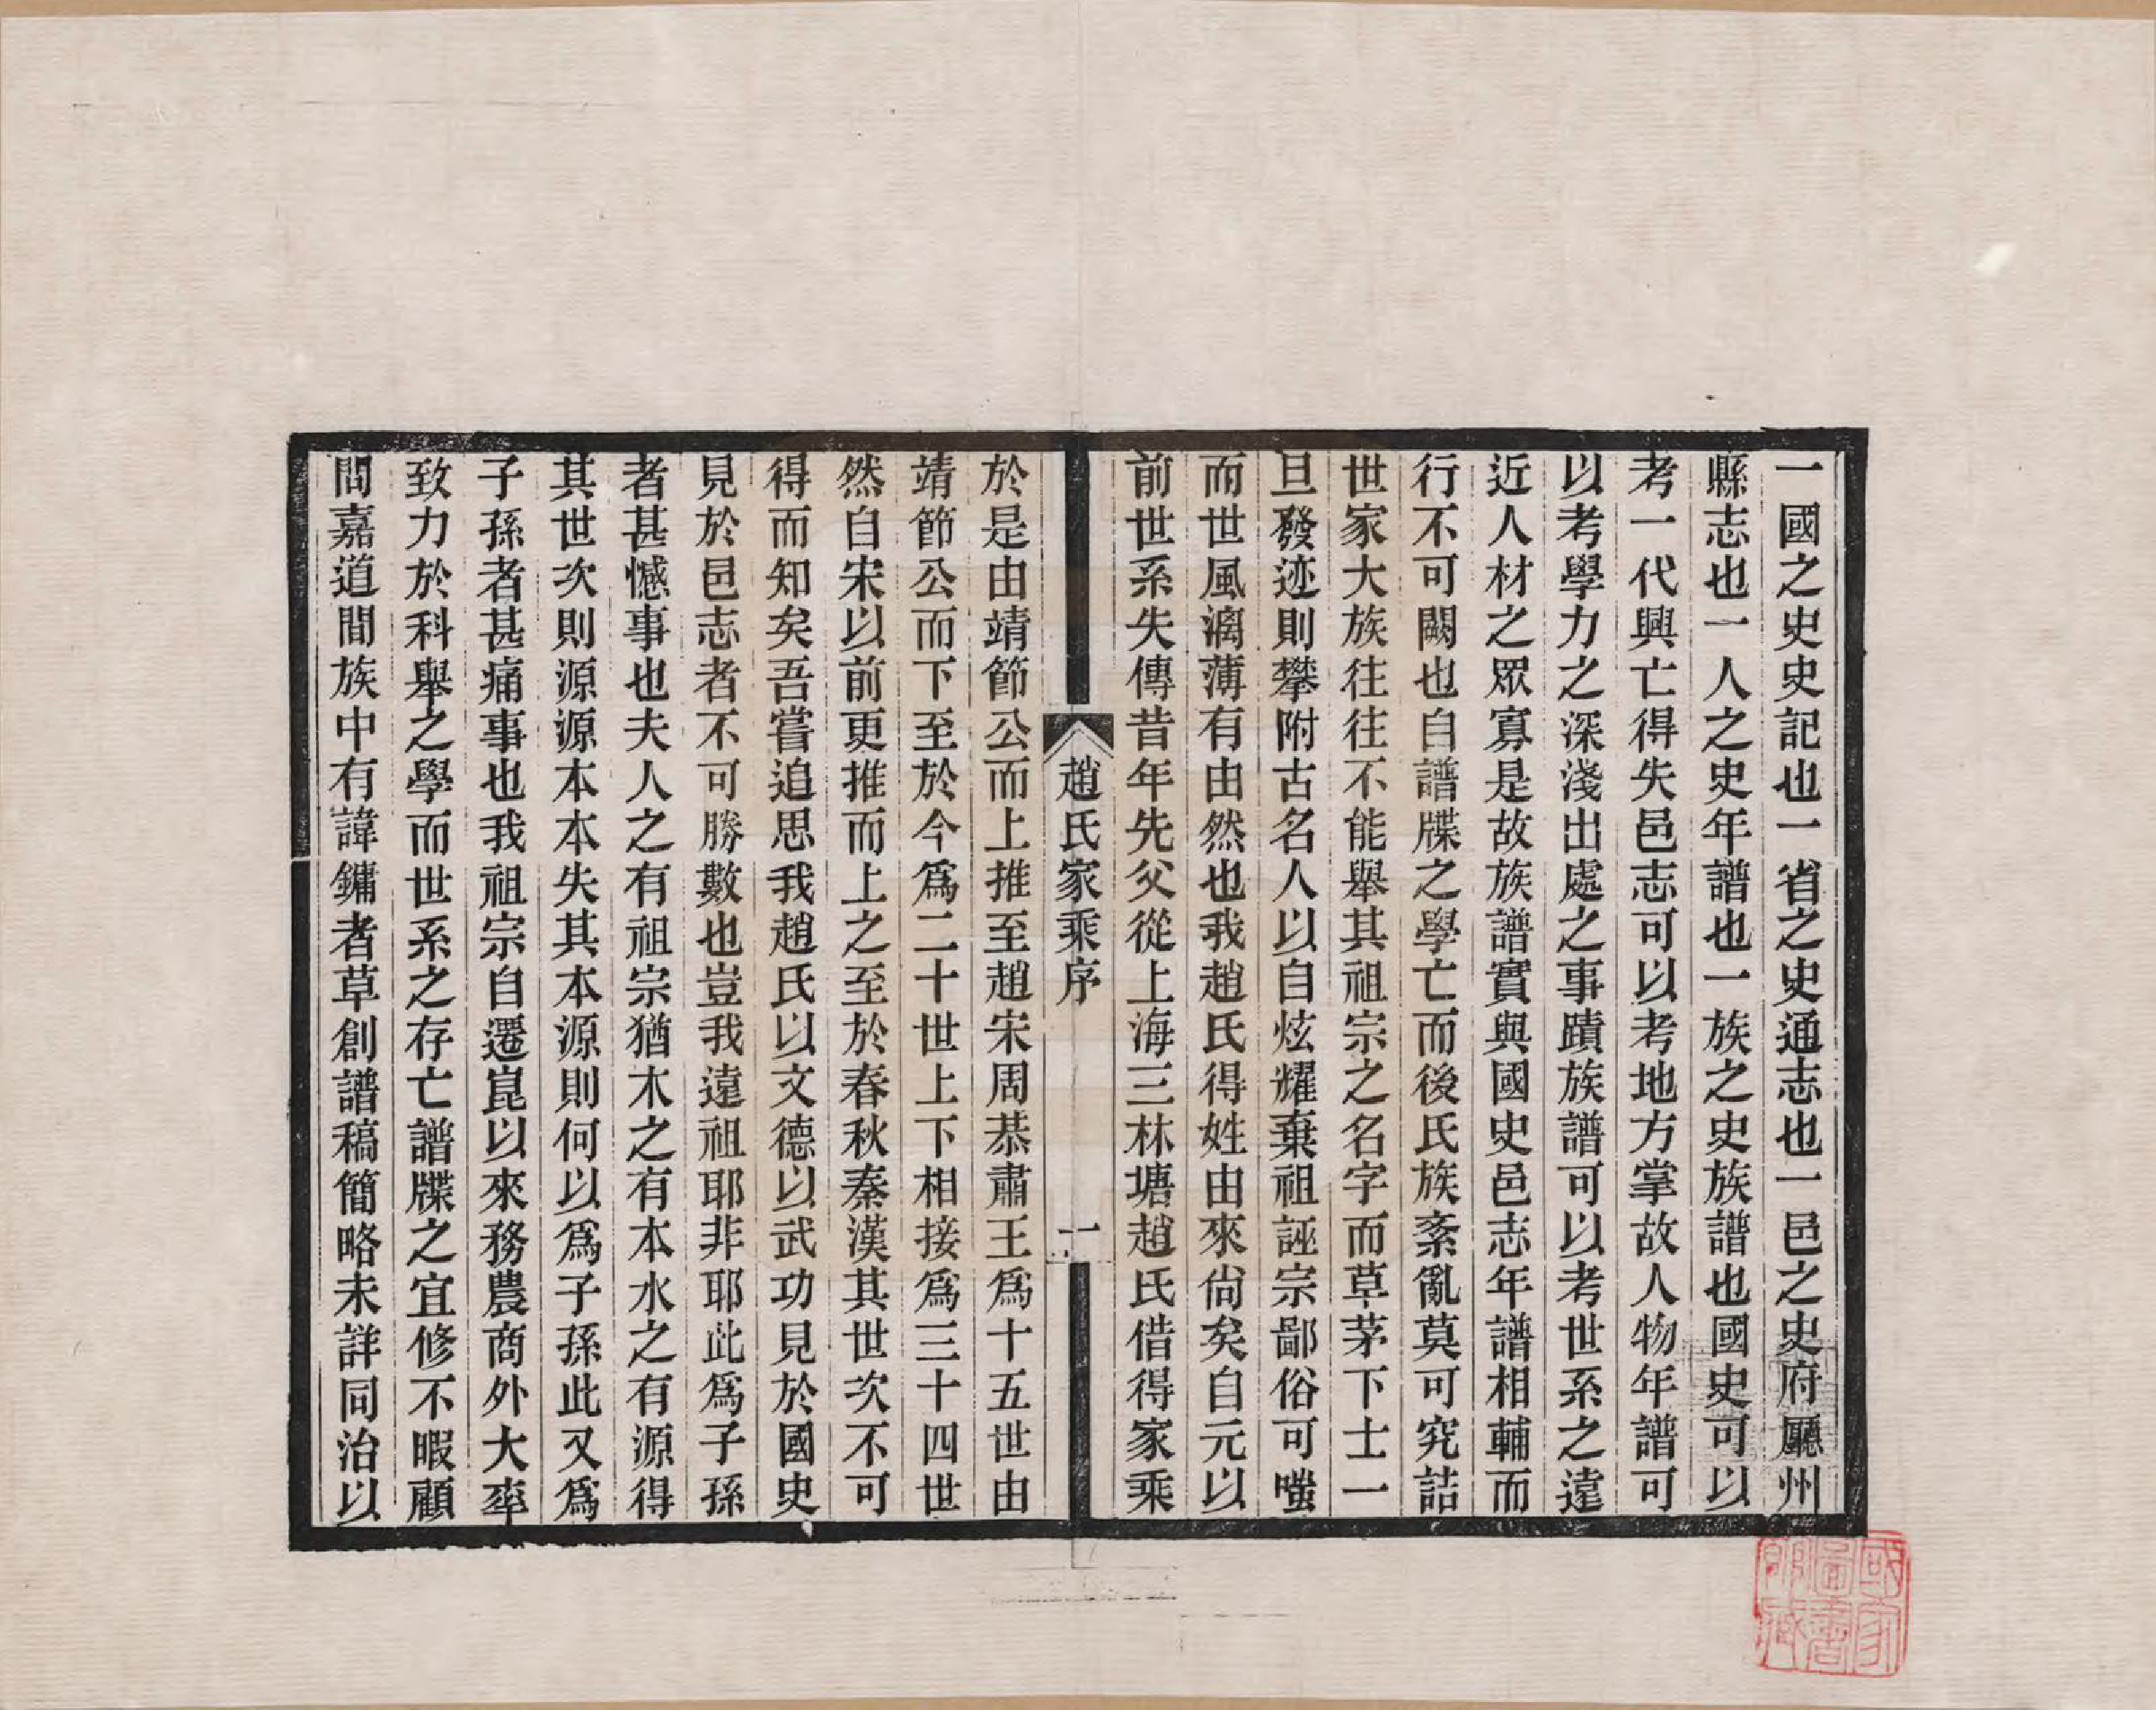 一國之史史記也一省之史通志也一邑之史府廳州
縣志也一人之史年譜也一族之史族譜也國史可以
考一代興亡得失邑志可以考地方掌故人物年譜可
以考學力之深淺出處之事蹟族譜可以考世系之遠
近人材之眾寡是故族譜實與國史邑志年譜相輔而
行不可闕也自譜牒之學亡而後氏族紊亂莫可究詰
世家大族往往不能舉其祖宗之名字而草茅下士一
旦發迹則攀附古名人以自炫耀棄祖誣宗鄙俗可嗤
而世風漓薄有由然也我趙氏得姓由來尙矣自元以
前世系失傳昔年先父從上海三林塘趙氏借得家乘
趙氏家乘序
一
於是由靖節公而上推至趙宋周恭肅王爲十五世由
靖節公而下至於今爲二十世上下相接爲三十四世
然自宋以前更推而上之至於春秋秦漢其世次不可
得而知矣吾嘗追思我趙氏以文德以武功見於國史
見於邑志者不可勝數也豈我遠祖耶非耶此爲子孫
者甚憾事也夫人之有祖宗猶木之有本水之有源得
其世次則源源本本失其本源則何以爲子孫此又爲
子孫者甚痛事也我祖宗自遷崑以來務農商外大率
致力於科舉之學而世系之存亡譜牒之宜修不暇顧
問嘉道間族中有諱鏞者草創譜稿簡略未詳同治以
國家
圖書
館藏